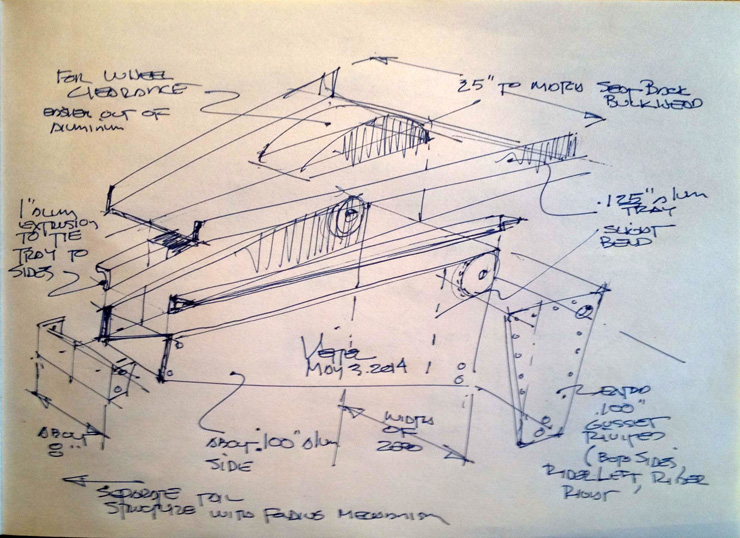 FOR WHEEL
CLEARANCE
EASIER OUT OF
ALUMINUM
25" TO MORE
SEAT BACK
BULKHEAD
1" ALUM
EXTRUSION
TO TIE
TRAY TO
SIDES
.125" ALUM
TRAY
SLIGHT
BEND
MAY 3.2014
WIDTH
OF
ZERO
ABOUT
8"
ABOUT .100" ALUM
SIDE
.100"
GUSSET
RIVITED
(BOTH SIDES
RIDER LEFT RIDER
RIGHT)
SEPARATE TAIL
STRUCTURE WITH FOLDING MECHANISM